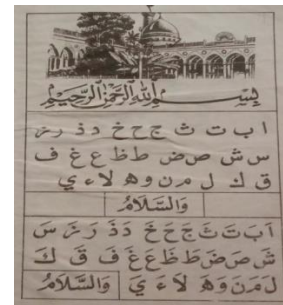 بِسْمِ اللهِ الرَّحْمٰنِ الرَّحِيْمِ
ا ب ت ث ج ح خ د ذ ر ز
س ش ص ض ط ظ ع غ ف
ق ك ل م ن و ه لا ء ي
وَالسَّلَامُ
اَ بَ تَ ثَ جَ حَ خَ دَ ذَ رَ زَ سَ
شَ صَ ضَ طَ ظَ عَ غَ فَ قَ كَ
لَ مَ نَ وَ هَ لَا ءَ يَ وَالسَّلَامُ